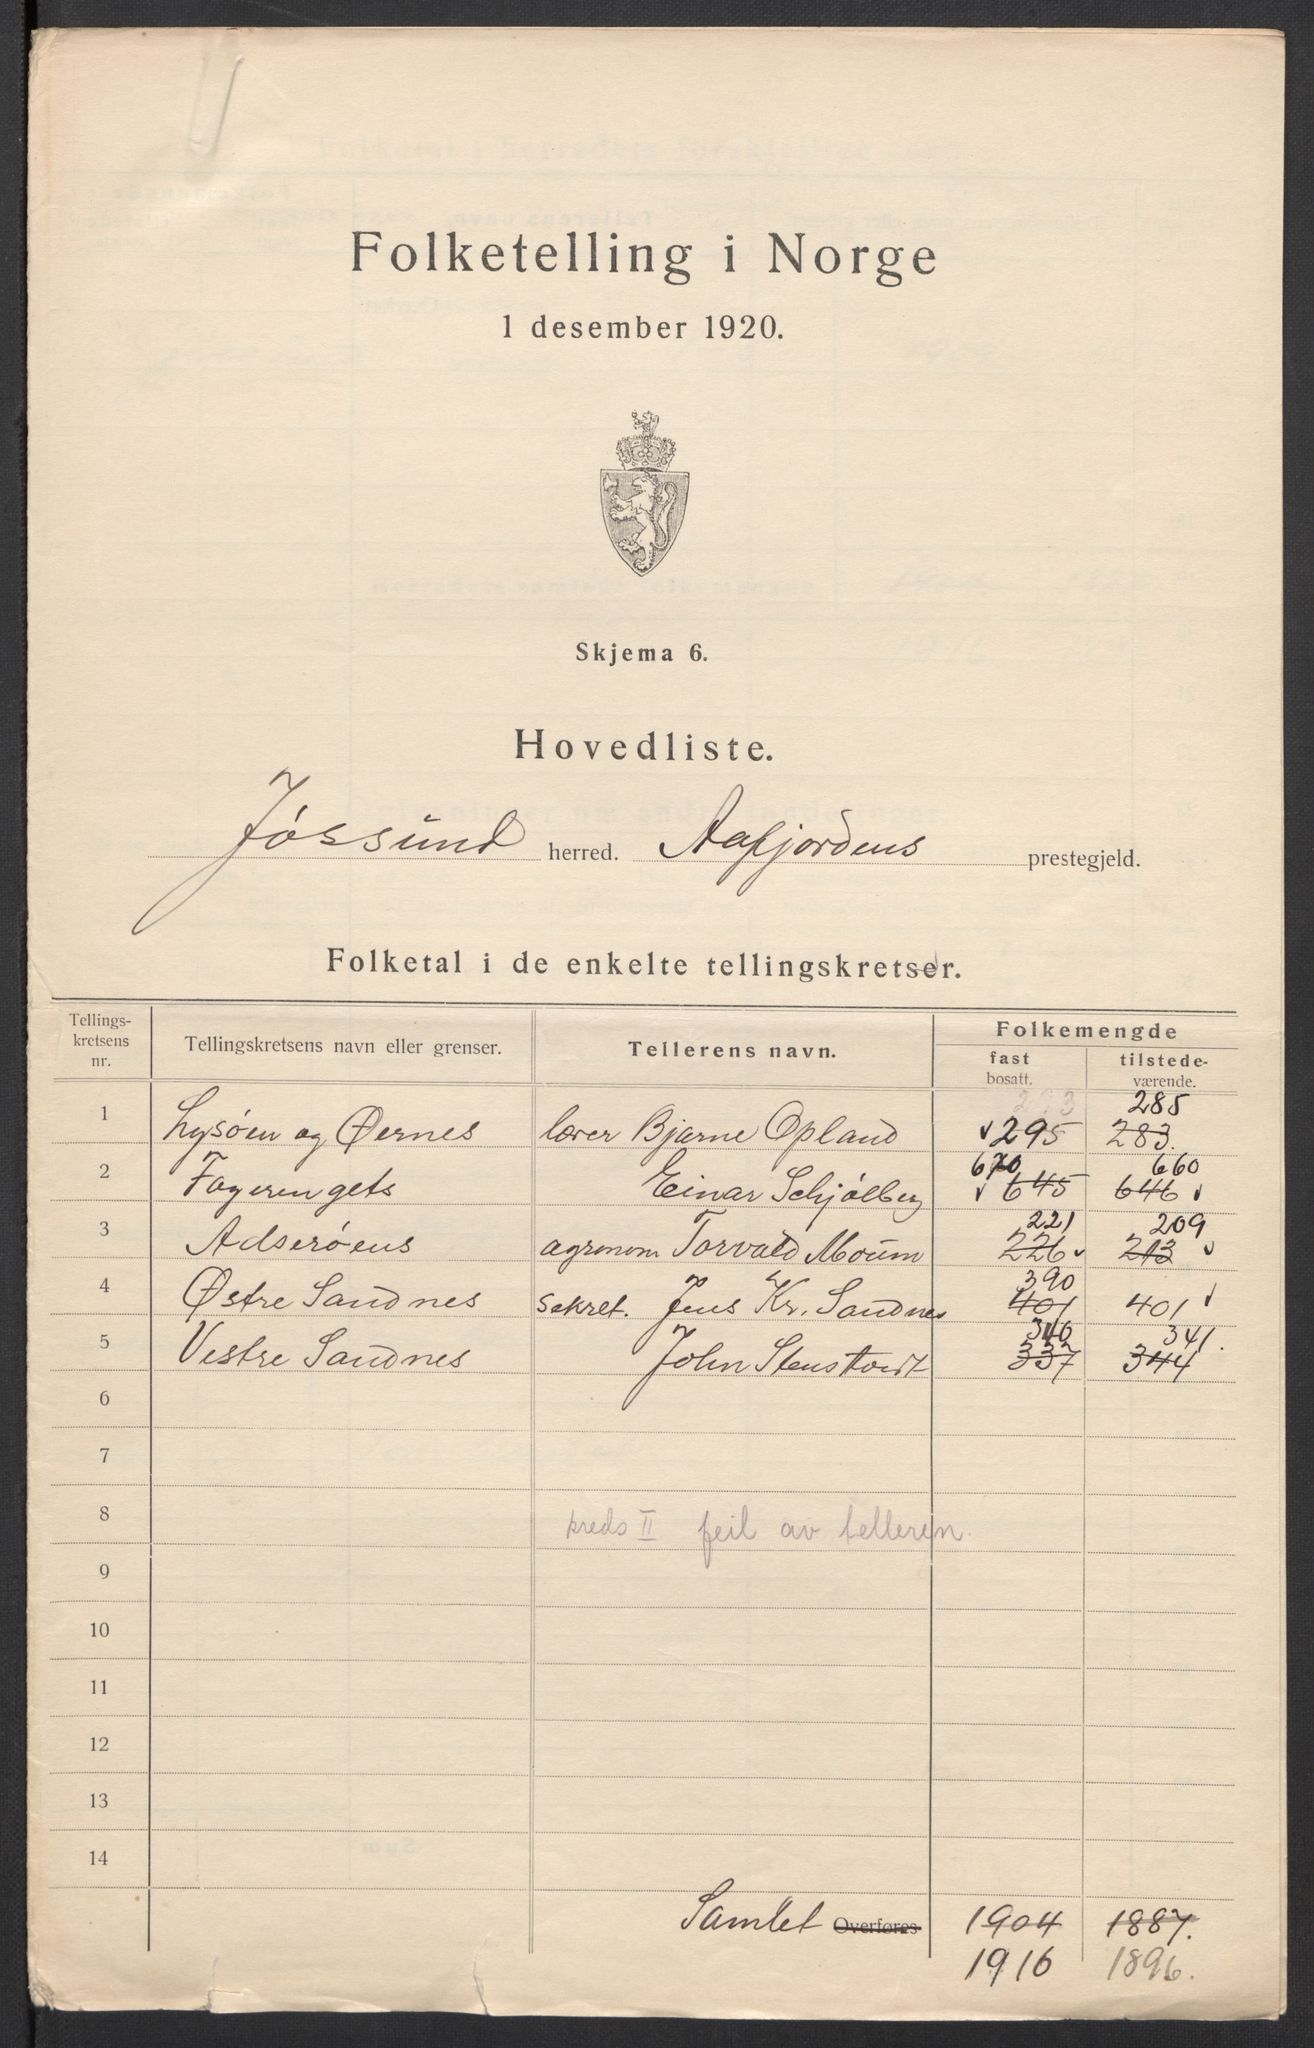 Folketelling i Norge
1 desember 1920.
Skjema 6.
Hovedliste.
Jøssund herred. Aafjordens prestegjeld.
Folketal i de enkelte tellingskretser.
Tellings-
kretsens
nr.
Tellingskretsens navn eller grenser.
Tellerens navn.
Folkemengde
fast
bosatt.
tilstede-
værende.
293 285
1 Lysøen og Øernes lærer Bjarne Opland 295 283.
670 660
2 Fagerengets Einar Schjølberg 645 646
221 209
3 Adserøens agronom Torvald Moum 226 213
390
4 Østre Sandnes sekret. Jens Kr. Sandnes 401 401
340 341.
5 Vestre Sandnes John 337 344
6
7
8 kreds II feil av telleren.
9
10
11
12
13
14
Samlet Overføres 1904 1887.
1916 1896.